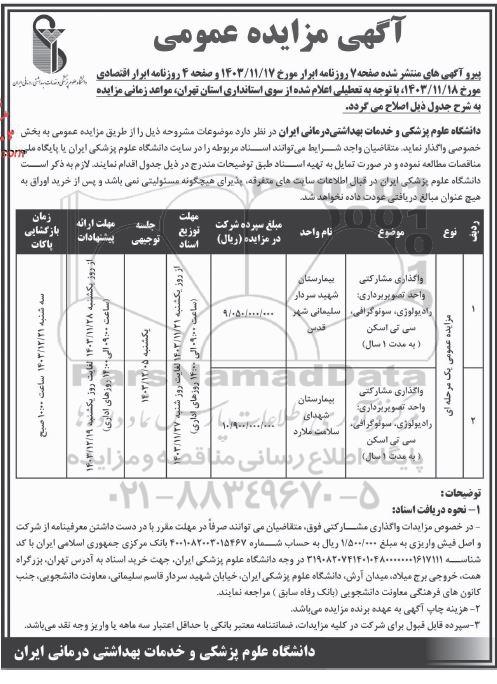 آگهی مزایده عمومی
دانشگاه علوم پزشکی و خدمات بهداشتی درمانی ایران
پیرو آگهی های منتشر شده صفحه ۷ روزنامه ابرار مورخ ۱۴۰۳/۱۱/۱۷ و صفحه ۴ روزنامه ابرار اقتصادی
مورخ ۱۴۰۳/۱۱/۱۸، با توجه به تعطیلی اعلام شده از سوی استانداری استان تهران، مواعد زمانی مزایده
به شرح جدول ذیل اصلاح می گردد.
دانشگاه علوم پزشکی و خدمات بهداشتی درمانی ایران در نظر دارد موضوعات مشروحه ذیل را از طریق مزایده عمومی به بخش
خصوصی واگذار نماید. متقاضیان واجد شرایط می‌توانند اسناد مربوطه را در سایت دانشگاه علوم پزشکی ایران یا پایگاه ملی
مناقصات مطالعه نموده و در صورت تمایل به تهیه اسناد طبق توضیحات مندرج در ذیل جدول اقدام نمایند. لازم به ذکر است
دانشگاه علوم پزشکی ایران در قبال اطلاعات سایت های متفرقه، پذیرای هیچگونه مسئولیتی نمی باشد و پس از خرید اوراق به
هیچ عنوان مبالغ دریافتی عودت داده نخواهد شد.
ردیف
نوع
موضوع
نام واحد
مبلغ سپرده شرکت
در مزایده (ریال)
مهلت
توزیع
اسناد
جلسه
توجیهی
مهلت ارائه
پیشنهادات
زمان
بازگشایی
پاکات
۱
مزایده عمومی یک مرحله ای
واگذاری مشارکتی
واحد تصویربرداری:
رادیولوژی، سونوگرافی،
سی تی اسکن
( به مدت ۱ سال)
بیمارستان
شهید سردار
سلیمانی شهر
قدس
۹/۰۵۰/۰۰۰/۰۰۰
از روز یکشنبه ۱۴۰۳/۱۱/۲۱ لغایت روز شنبه ۱۴۰۳/۱۱/۲۷
(ساعت ۰۹:۰۰ الی ۱۴:۰۰ روزهای اداری)
یکشنبه ۱۴۰۳/۱۲/۰۵
از روز یکشنبه ۱۴۰۳/۱۱/۲۸ لغایت روز یکشنبه ۱۴۰۳/۱۲/۱۹
(ساعت ۰۹:۰۰ الی ۱۴:۰۰ روزهای اداری)
سه شنبه ۱۴۰۳/۱۲/۲۱ ساعت ۱۰:۰۰ صبح
۲
واگذاری مشارکتی
واحد تصویربرداری:
رادیولوژی، سونوگرافی،
سی تی اسکن
( به مدت ۱ سال)
بیمارستان
شهدای
سلامت ملارد
۱۰/۹۰۰/۰۰۰/۰۰۰
ParsNamadData
پایگاه اطلاع رسانی مناقصه و مزایده
۰۲۱-۸۸۳۴۹۶۷۰-۵
توضیحات:
۱- نحوه دریافت اسناد:
- در خصوص مزایدات واگذاری مشارکتی فوق، متقاضیان می توانند صرفاً در مهلت مقرر با در دست داشتن معرفینامه از شرکت
و اصل فیش واریزی به مبلغ ۱/۵۰۰/۰۰۰ ریال به حساب شماره ۴۰۰۱۰۸۲۰۰۳۰۱۵۴۶۷ بانک مرکزی جمهوری اسلامی ایران با کد
شناسه ۳۱۹۰۸۲۰۷۴۱۴۰۱۰۴۸۰۰۰۰۰۰۰۱۶۱۷۱۱۱ در وجه دانشگاه علوم پزشکی ایران، جهت خرید اسناد به آدرس تهران، بزرگراه
همت، خروجی برج میلاد، میدان آرش، دانشگاه علوم پزشکی ایران، خیابان شهید سردار قاسم سلیمانی، معاونت دانشجویی، جنب
کانون های فرهنگی معاونت دانشجویی (بانک رفاه سابق ) مراجعه نمایند.
۲- هزینه چاپ آگهی به عهده برنده مزایده می‌باشد.
۳-سپرده قابل قبول برای شرکت در کلیه مزایدات، ضمانتنامه معتبر بانکی با حداقل اعتبار سه ماهه یا واریز وجه نقد می‌باشد.
دانشگاه علوم پزشکی و خدمات بهداشتی درمانی ایران